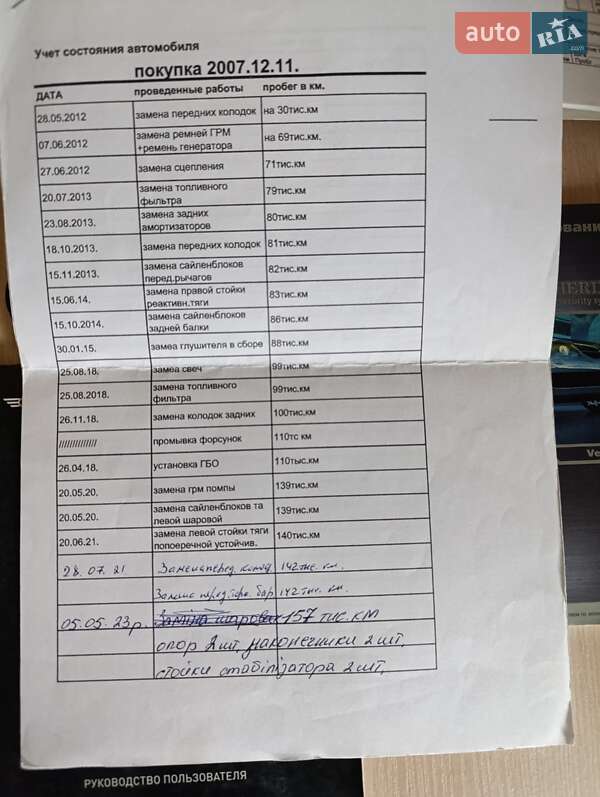 auto RIA .com
Учет состояния автомобиля
покупка 2007.12.11.
ДАТА проведенные работы пробег в км.
28.05.2012 замена передних колодок на 30тис.км
07.06.2012 замена ремней ГРМ на 69тис.км.
+ремень генератора
27.06.2012 замена сцепления 71тис.км
20.07.2013 замена топливного 79тис.км
фыльтра
23.08.2013. замена задних 80тис.км
амортизаторов
18.10.2013. замена передних колодок 81тис.км
15.11.2013. замена сайленблоков 82тис.км
перед.рычагов
15.06.14. замена правой стойки 83тис.км
реактивн.тяги
15.10.2014. замена сайленблоков 86тис.км
задней балки
30.01.15. замеа глушителя в сборе 88тис.км
25.08.18. замеа свеч 99тис.км
25.08.2018. замена топливного 99тис.км
фильтра
26.11.18. замена колодок задних 100тис.км
////////////// промывка форсунок 110тс км
26.04.18. установка ГБО 110тыс.км
20.05.20. замена грм помпы 139тис.км
20.05.20. замена сайленблоков та 139тис.км
левой шаровой
20.06.21. замена левой стойки тяги 140тис.км
попоеречной устойчив.
28.07.21 Замена перед. колод. 142тис. км.
Замена перед. бар. 142 тис. км.
05.05.23р. Заміна шарових 157 тис. км
опор 2 шт, наконечники 2 шт,
стойки стабілізатора 2 шт.
РУКОВОДСТВО ПОЛЬЗОВАТЕЛЯ